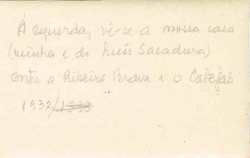 À esquerda, vê-se a nossa casa
(minha e do Luís Sacadura)
entre a Ribeira Brava e o
1932/1933